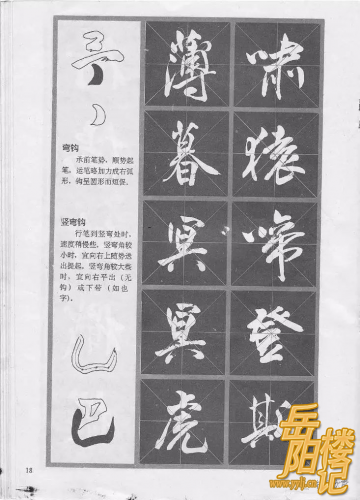 弯钩
承前笔势、顺势起
笔，运笔略加力成右弧
形，钩呈圆形而短促。
竖弯钩
行笔到竖弯处时，
速度稍慢些，竖弯角较
小时，宜向右上随势透
出提起，竖弯角较大些
时，宜向右平出（无
钩）或下带（如也
字）。
巴
薄暮冥冥虎
啸猿啼登斯
18
岳阳楼记